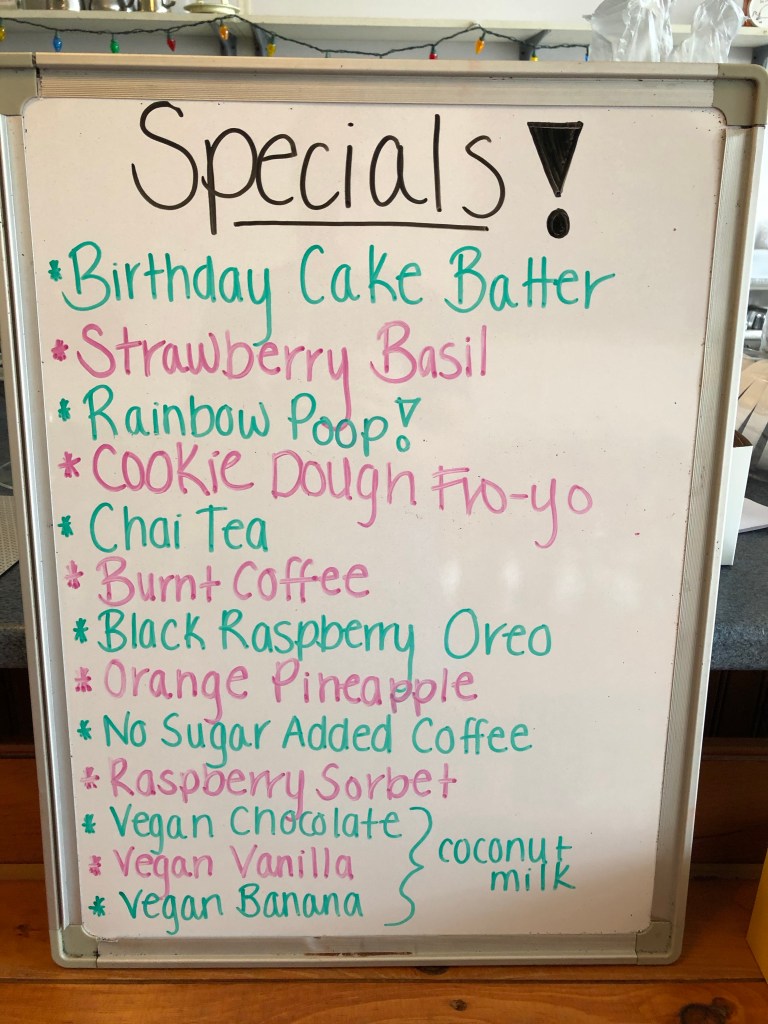 Specials!
* Birthday Cake Batter
* Strawberry Basil
* Rainbow Poop!
* Cookie Dough Fro-yo
* Chai Tea
* Burnt Coffee
* Black Raspberry Oreo
* Orange Pineapple
* No Sugar Added Coffee
* Raspberry Sorbet
* Vegan Chocolate
* Vegan Vanilla
* Vegan Banana
coconut
milk